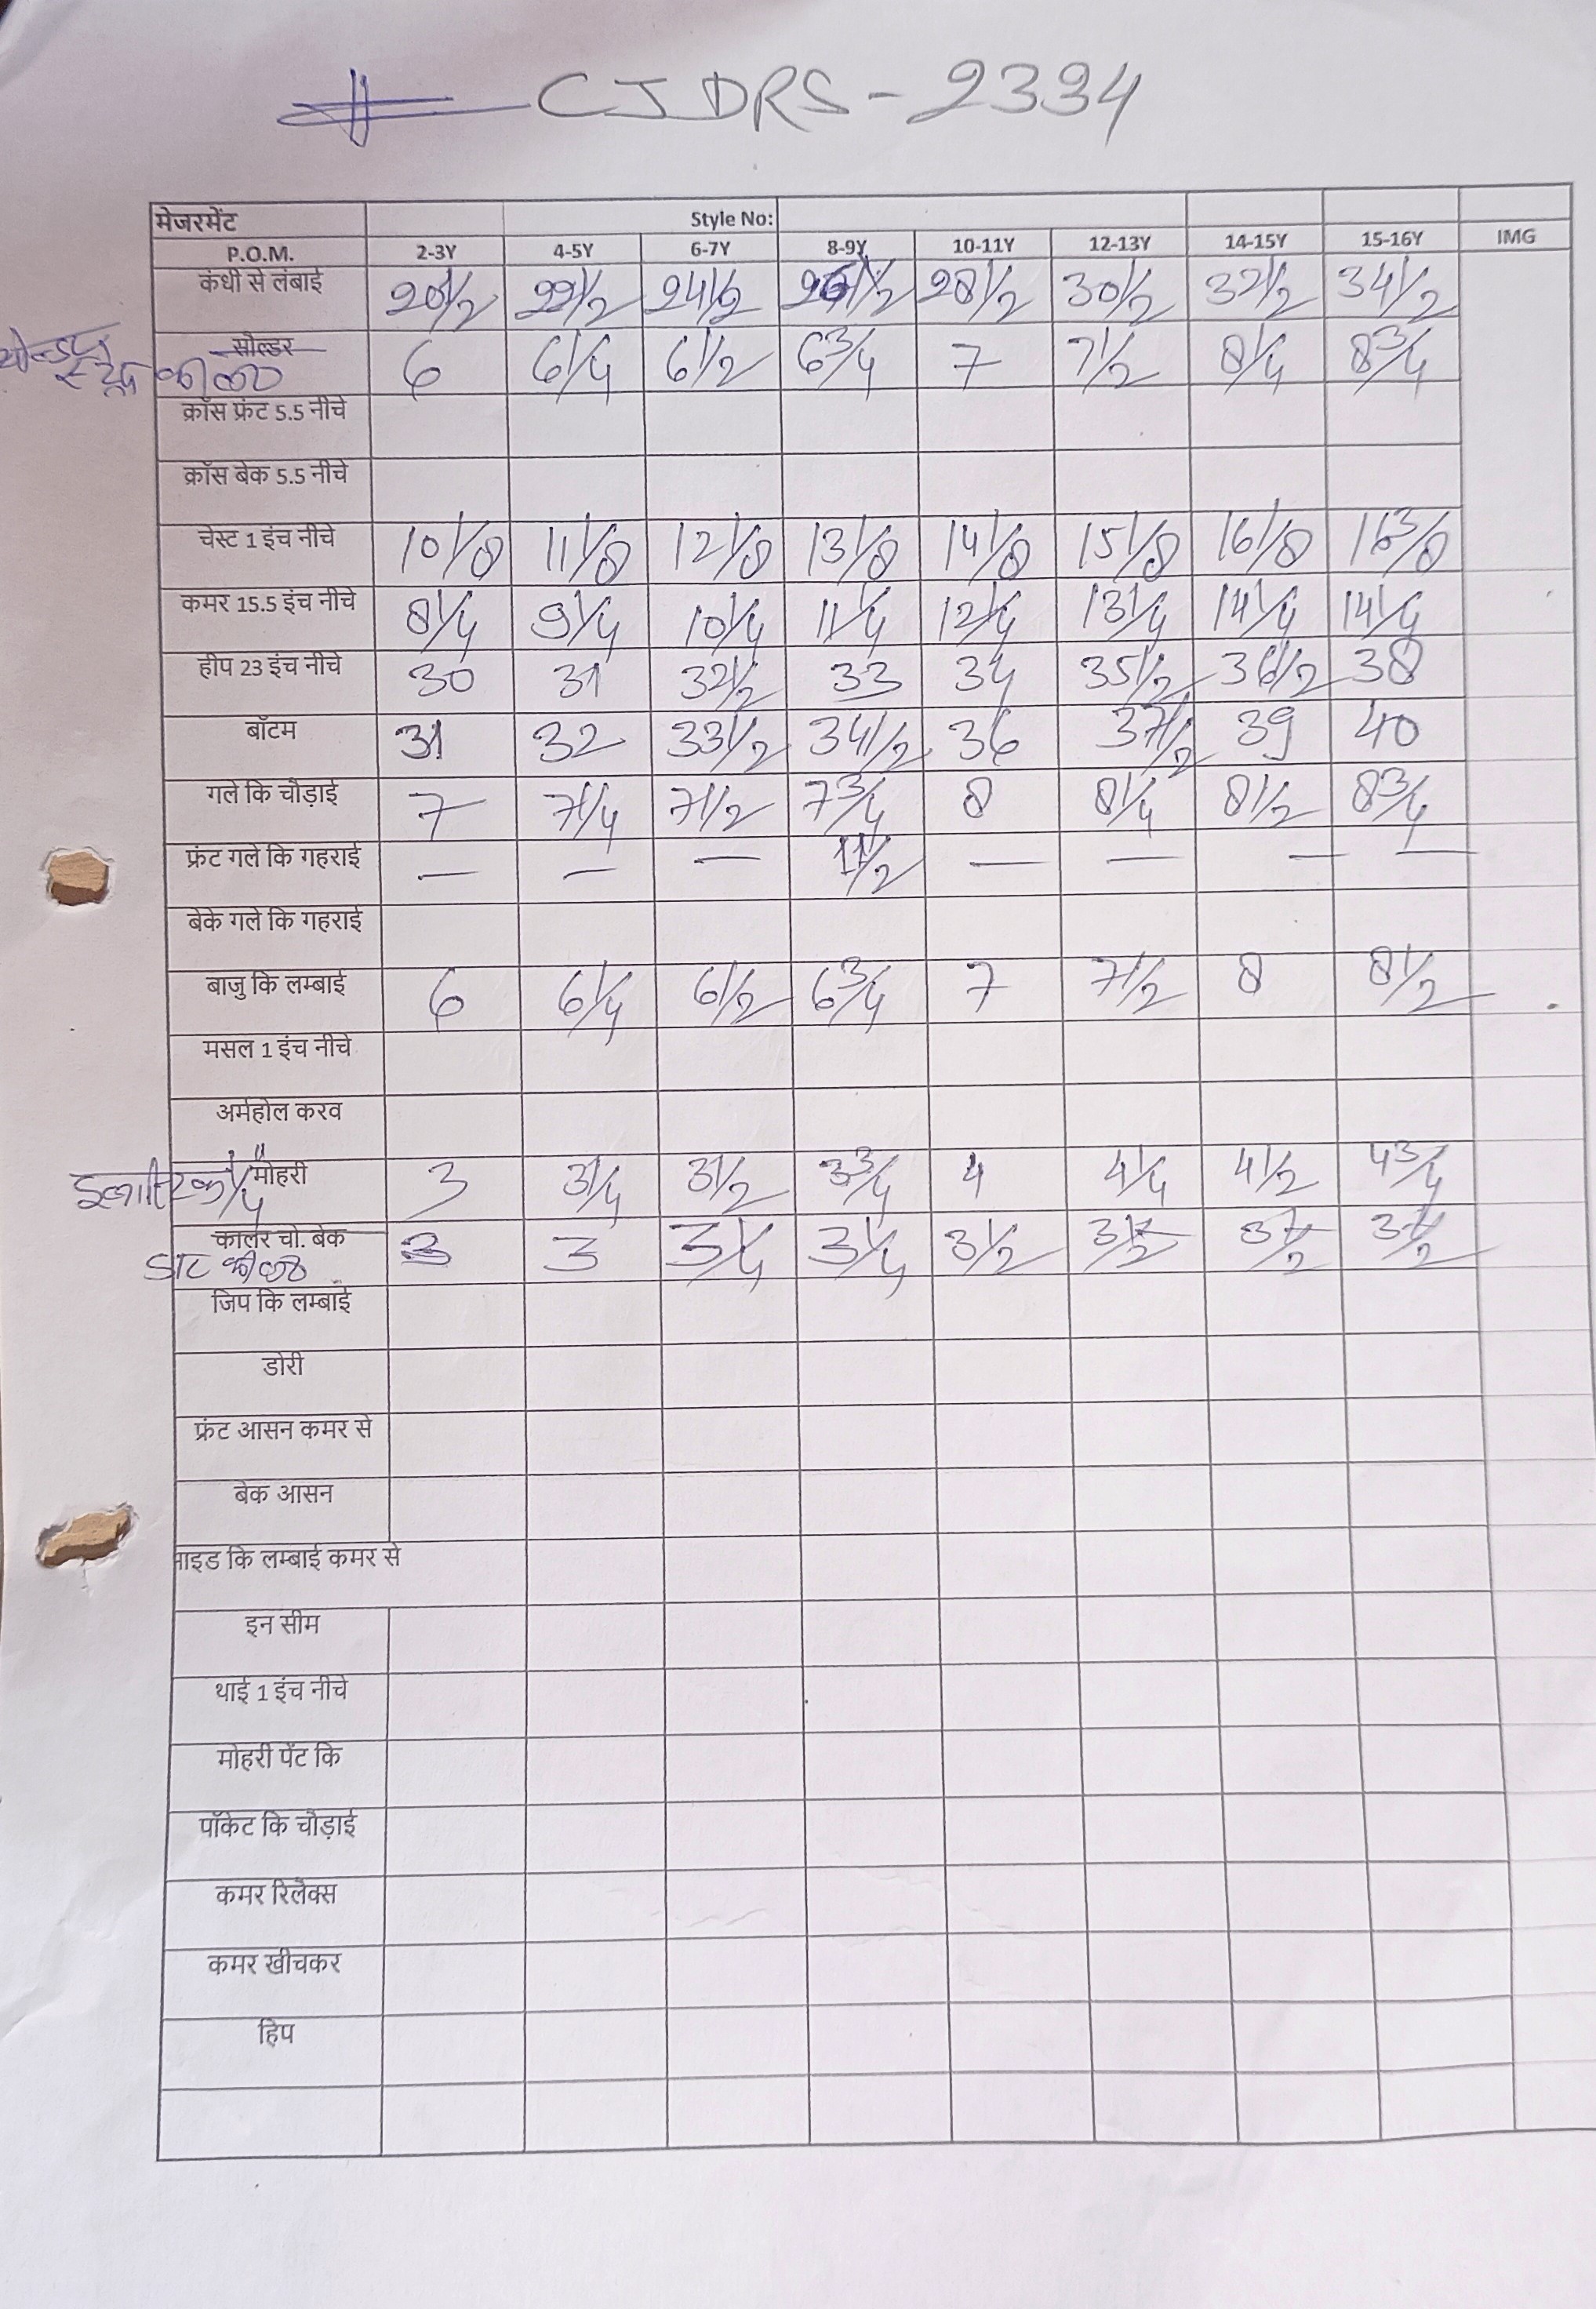 # CJDRS - 2334
मेजरमेंट Style No:
P.O.M. 2-3Y 4-5Y 6-7Y 8-9Y 10-11Y 12-13Y 14-15Y 15-16Y IMG
कंधी से लंबाई 20 1/2 22 1/2 24 1/2 26 1/2 28 1/2 30 1/2 32 1/2 34 1/2
सोल्डर 6 6 1/4 6 1/2 6 3/4 7 7 1/2 8 1/4 8 3/4
क्रॉस फ्रंट 5.5 नीचे
क्रॉस बेक 5.5 नीचे
चेस्ट 1 इंच नीचे 10 1/8 11 1/8 12 1/8 13 1/8 14 1/8 15 1/8 16 1/8 16 3/8
कमर 15.5 इंच नीचे 8 1/4 9 1/4 10 1/4 11 1/4 12 1/4 13 1/4 14 1/4 14 1/4
हीप 23 इंच नीचे 30 31 32 1/2 33 34 35 1/2 36 1/2 38
बॉटम 31 32 33 1/2 34 1/2 36 37 1/2 39 40
गले कि चौड़ाई 7 7 1/4 7 1/2 7 3/4 8 8 1/4 8 1/2 8 3/4
फ्रंट गले कि गहराई — — — 1 1/2 — — — —
बेके गले कि गहराई
बाजु कि लम्बाई 6 6 1/4 6 1/2 6 3/4 7 7 1/2 8 8 1/2
मसल 1 इंच नीचे
अर्महोल करव
मोहरी 3 3 1/4 3 1/2 3 3/4 4 4 1/4 4 1/2 4 3/4
कालर चो. बेक 3 3 3 1/4 3 1/4 3 1/2 3 1/2 3 1/2 3 1/2
जिप कि लम्बाई
डोरी
फ्रंट आसन कमर से
बेक आसन
साइड कि लम्बाई कमर से
इन सीम
थाई 1 इंच नीचे
मोहरी पेंट कि
पॉकेट कि चौड़ाई
कमर रिलेक्स
कमर खीचकर
हिप